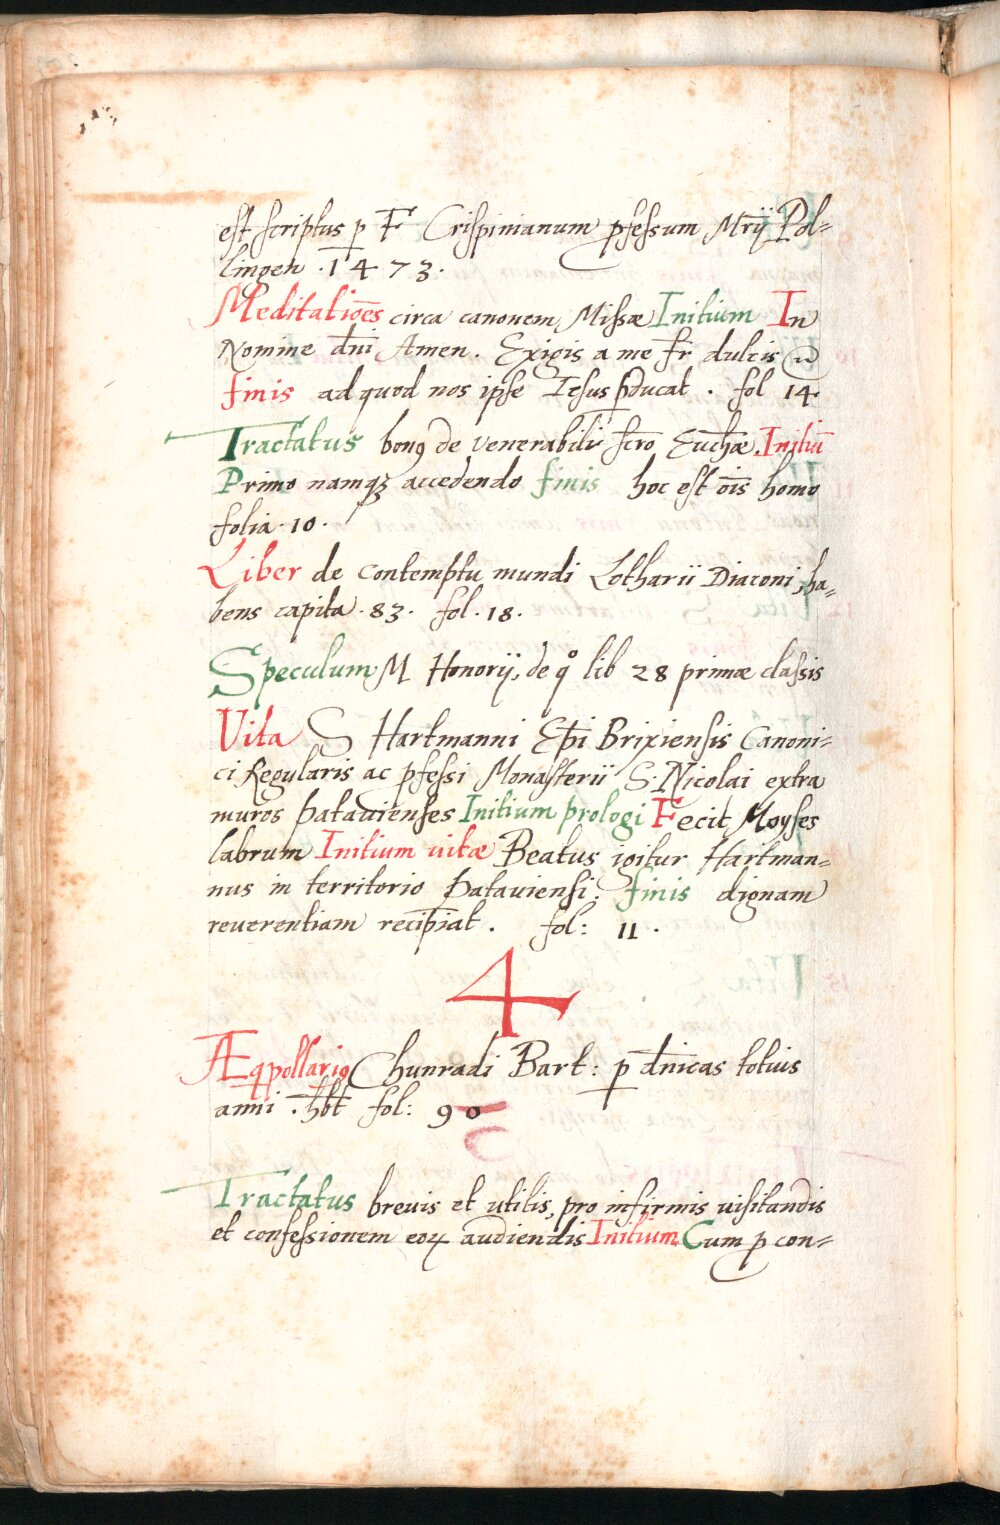 est scriptus p F Crispinianum pfessum Mrij Pol=
lingen .1473.
Meditatioēs circa canonem Missæ Initium In
Nomine dn̄i Amen. Exigis a me fr̄ dulcis
finis ad quod nos ipse Iesus pducat . fol 14.
Tractatus bonꝯ de venerabili scr̄o Euchæ. Initiū
Primo namqꝫ accedendo finis hoc est oīs homo
folia .10.
Liber de contemptu mundi Lotharii Diaconi, ha=
bens capita .83. fol .18.
Speculum M Honorij, de qo lib 28 primæ classis
Vita S Hartmanni Epi Brixiensis Canoni=
ci Regularis ac pfessi Monasterii S. Nicolai extra
muros Patauienses Initium prologi Fecit Moyses
labrum Initium uitæ Beatus igitur Hartman=
nus in territorio Patauiensi. finis dignam
reuerentiam recipiat . fol: 11 .
4
Æqpollariꝯ Chunradi Bart: p dn̄icas totius
anni . hb̄t fol: 90
Tractatus breuis et utilis, pro infirmis uisitandis
et confessionem eoꝝ audiendis Initium Cum p con=